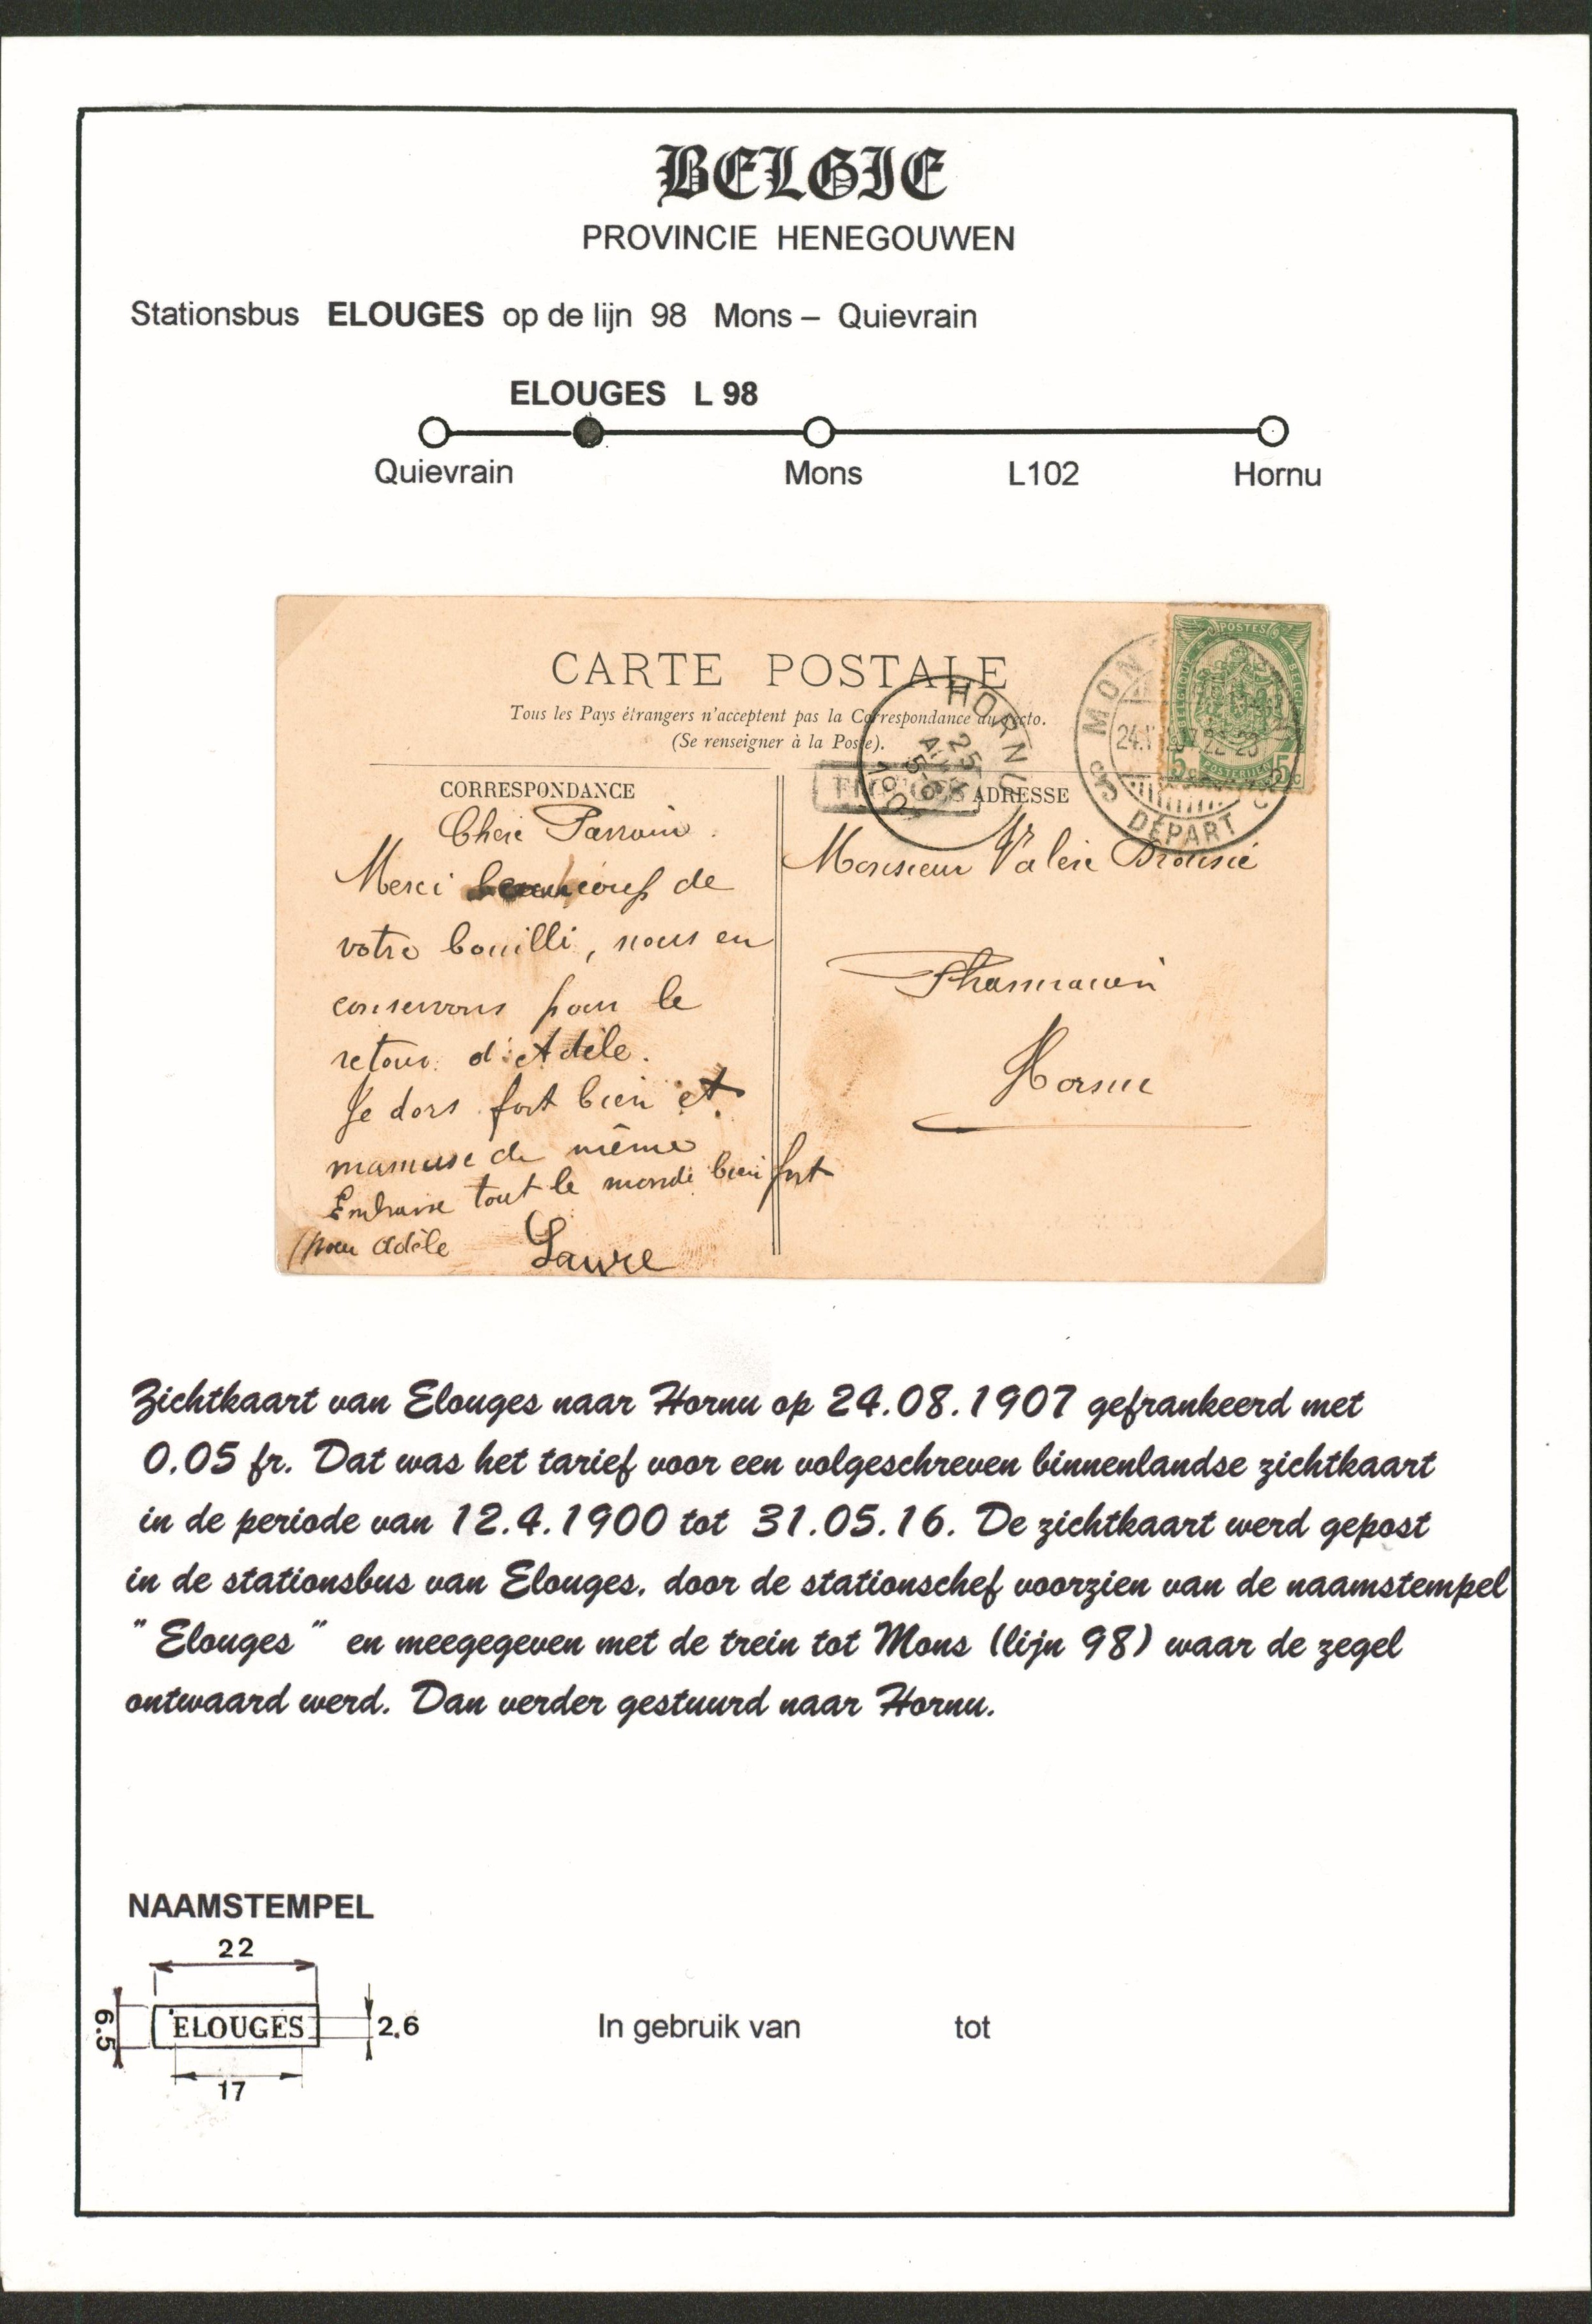 BELGIE
PROVINCIE HENEGOUWEN
Stationsbus ELOUGES op de lijn 98 Mons – Quievrain
ELOUGES L 98
Quievrain Mons L102 Hornu
CARTE POSTALE
Tous les Pays étrangers n'acceptent pas la Correspondance au recto.
(Se renseigner à la Poste).
POSTES
BELGIQUE BELGIE
POSTERIJEN
5 5c
MONS
DÉPART
HORNU
25
5-6
CORRESPONDANCE
ADRESSE
Cher Parrain.
Merci beaucoup de
votre bouilli, nous en
conservons pour le
retour d'Adèle.
Je dors fort bien et
mamuse de même
Embrasse tout le monde bien fort
pour Adèle Laure
Monsieur Valère
Pharmacien
Hornu
Zichtkaart van Elouges naar Hornu op 24.08.1907 gefrankeerd met
0.05 fr. Dat was het tarief voor een volgeschreven binnenlandse zichtkaart
in de periode van 12.4.1900 tot 31.05.16. De zichtkaart werd gepost
in de stationsbus van Elouges, door de stationschef voorzien van de naamstempel
" Elouges " en meegegeven met de trein tot Mons (lijn 98) waar de zegel
ontwaard werd. Dan verder gestuurd naar Hornu.
NAAMSTEMPEL
22
6.5 ELOUGES 2.6
17
In gebruik van tot